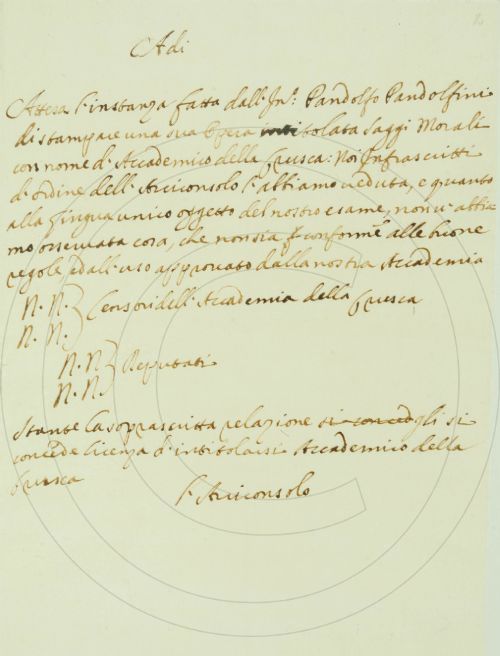 Adi
Attesa l'instanza fatta dall'Inn.: Pandolfo Pandolfini
di stampare una sua Opera intitolata Saggi Morali
con nome d'Accademico della Crusca: Noi Infrascritti
di ordine dell'Arciconsolo l'abbiamo veduta, e quanto
alla lingua unico oggetto del nostro esame, non v'abbia
mo osservata cosa, che non sia conforme alle buone
regole ed all'uso approvato dalla nostra Accademia
N. N. } Censori dell'Accademia della Crusca
N. N.
N. N. } Deputati
N. N.
Stante la soprascritta relazione si concede gli si
concede licenza d'intitolarsi Accademico della
Crusca
L'Arciconsolo